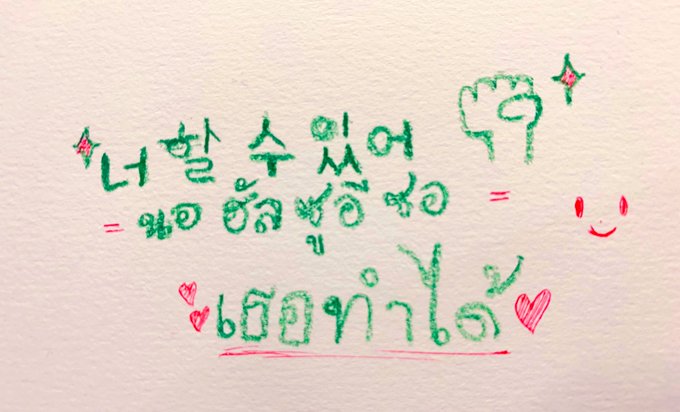 너 할 수 있어
= นอ ฮัล ซู อี ซอ =
เธอทำได้